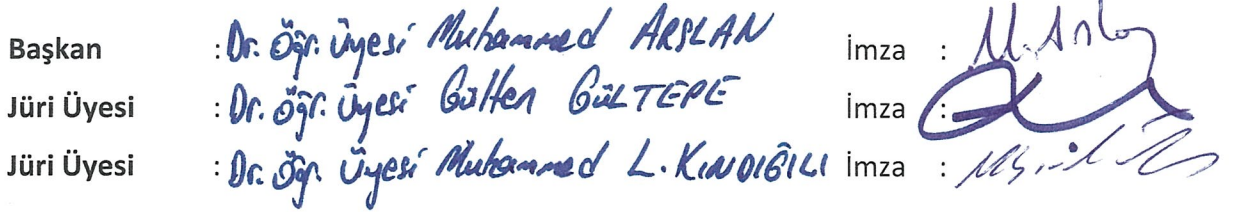 Başkan : Dr. Öğr. Üyesi Muhammed ARSLAN İmza :
Jüri Üyesi : Dr. Öğr. Üyesi Gülten GÜLTEPE İmza :
Jüri Üyesi : Dr. Öğr. Üyesi Muhammed L. KINDIĞILI İmza :